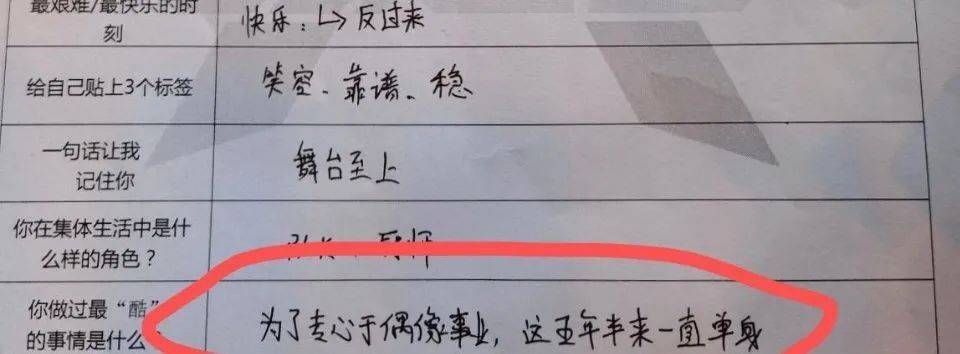 最艰难/最快乐的时
刻
快乐：↳ 反过来
给自己贴上3个标签
笑容、靠谱、稳
一句话让我
记住你
舞台至上
你在集体生活中是什
么样的角色？
你做过最“酷”
的事情是什么
为了专心于偶像事业，这五年半来一直单身